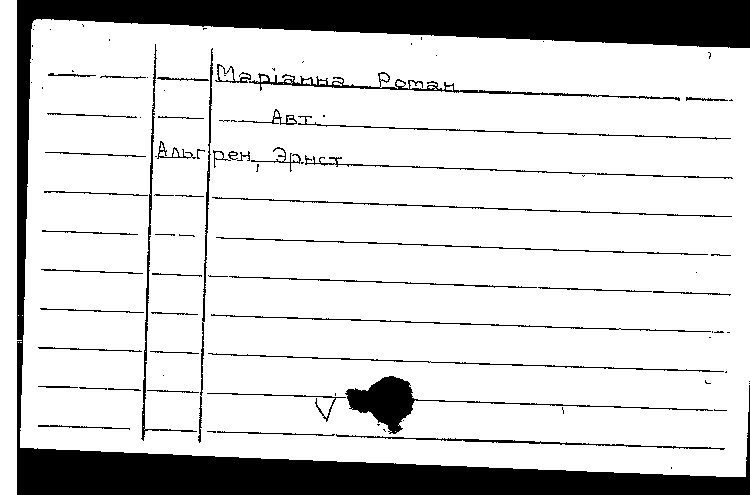 Маріанна. Роман
Авт.:
Альгрен, Эрнст